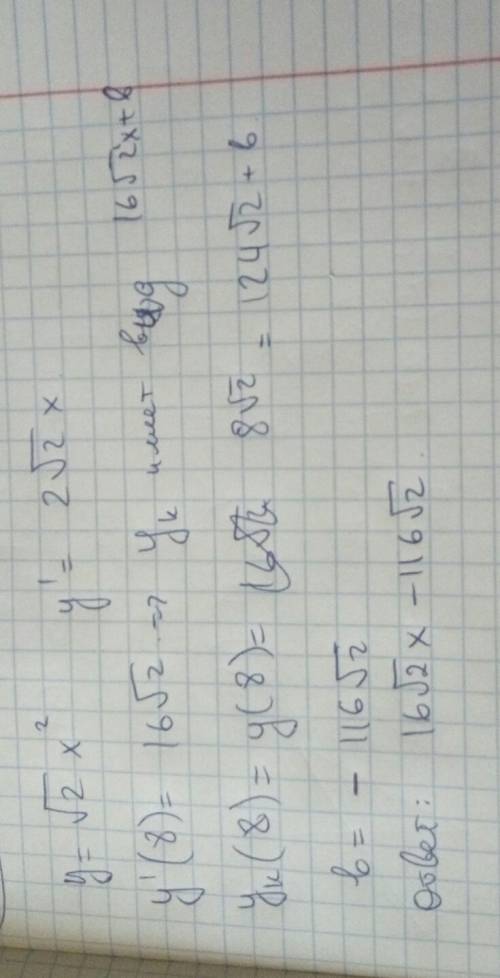 y = √2 x² y' = 2√2 x
y'(8) = 16√2 => yк имеет вид 16√2x + b
yк(8) = y(8) = 8√2 = 124√2 + b
b = - 116√2
Ответ: 16√2 x - 116√2.